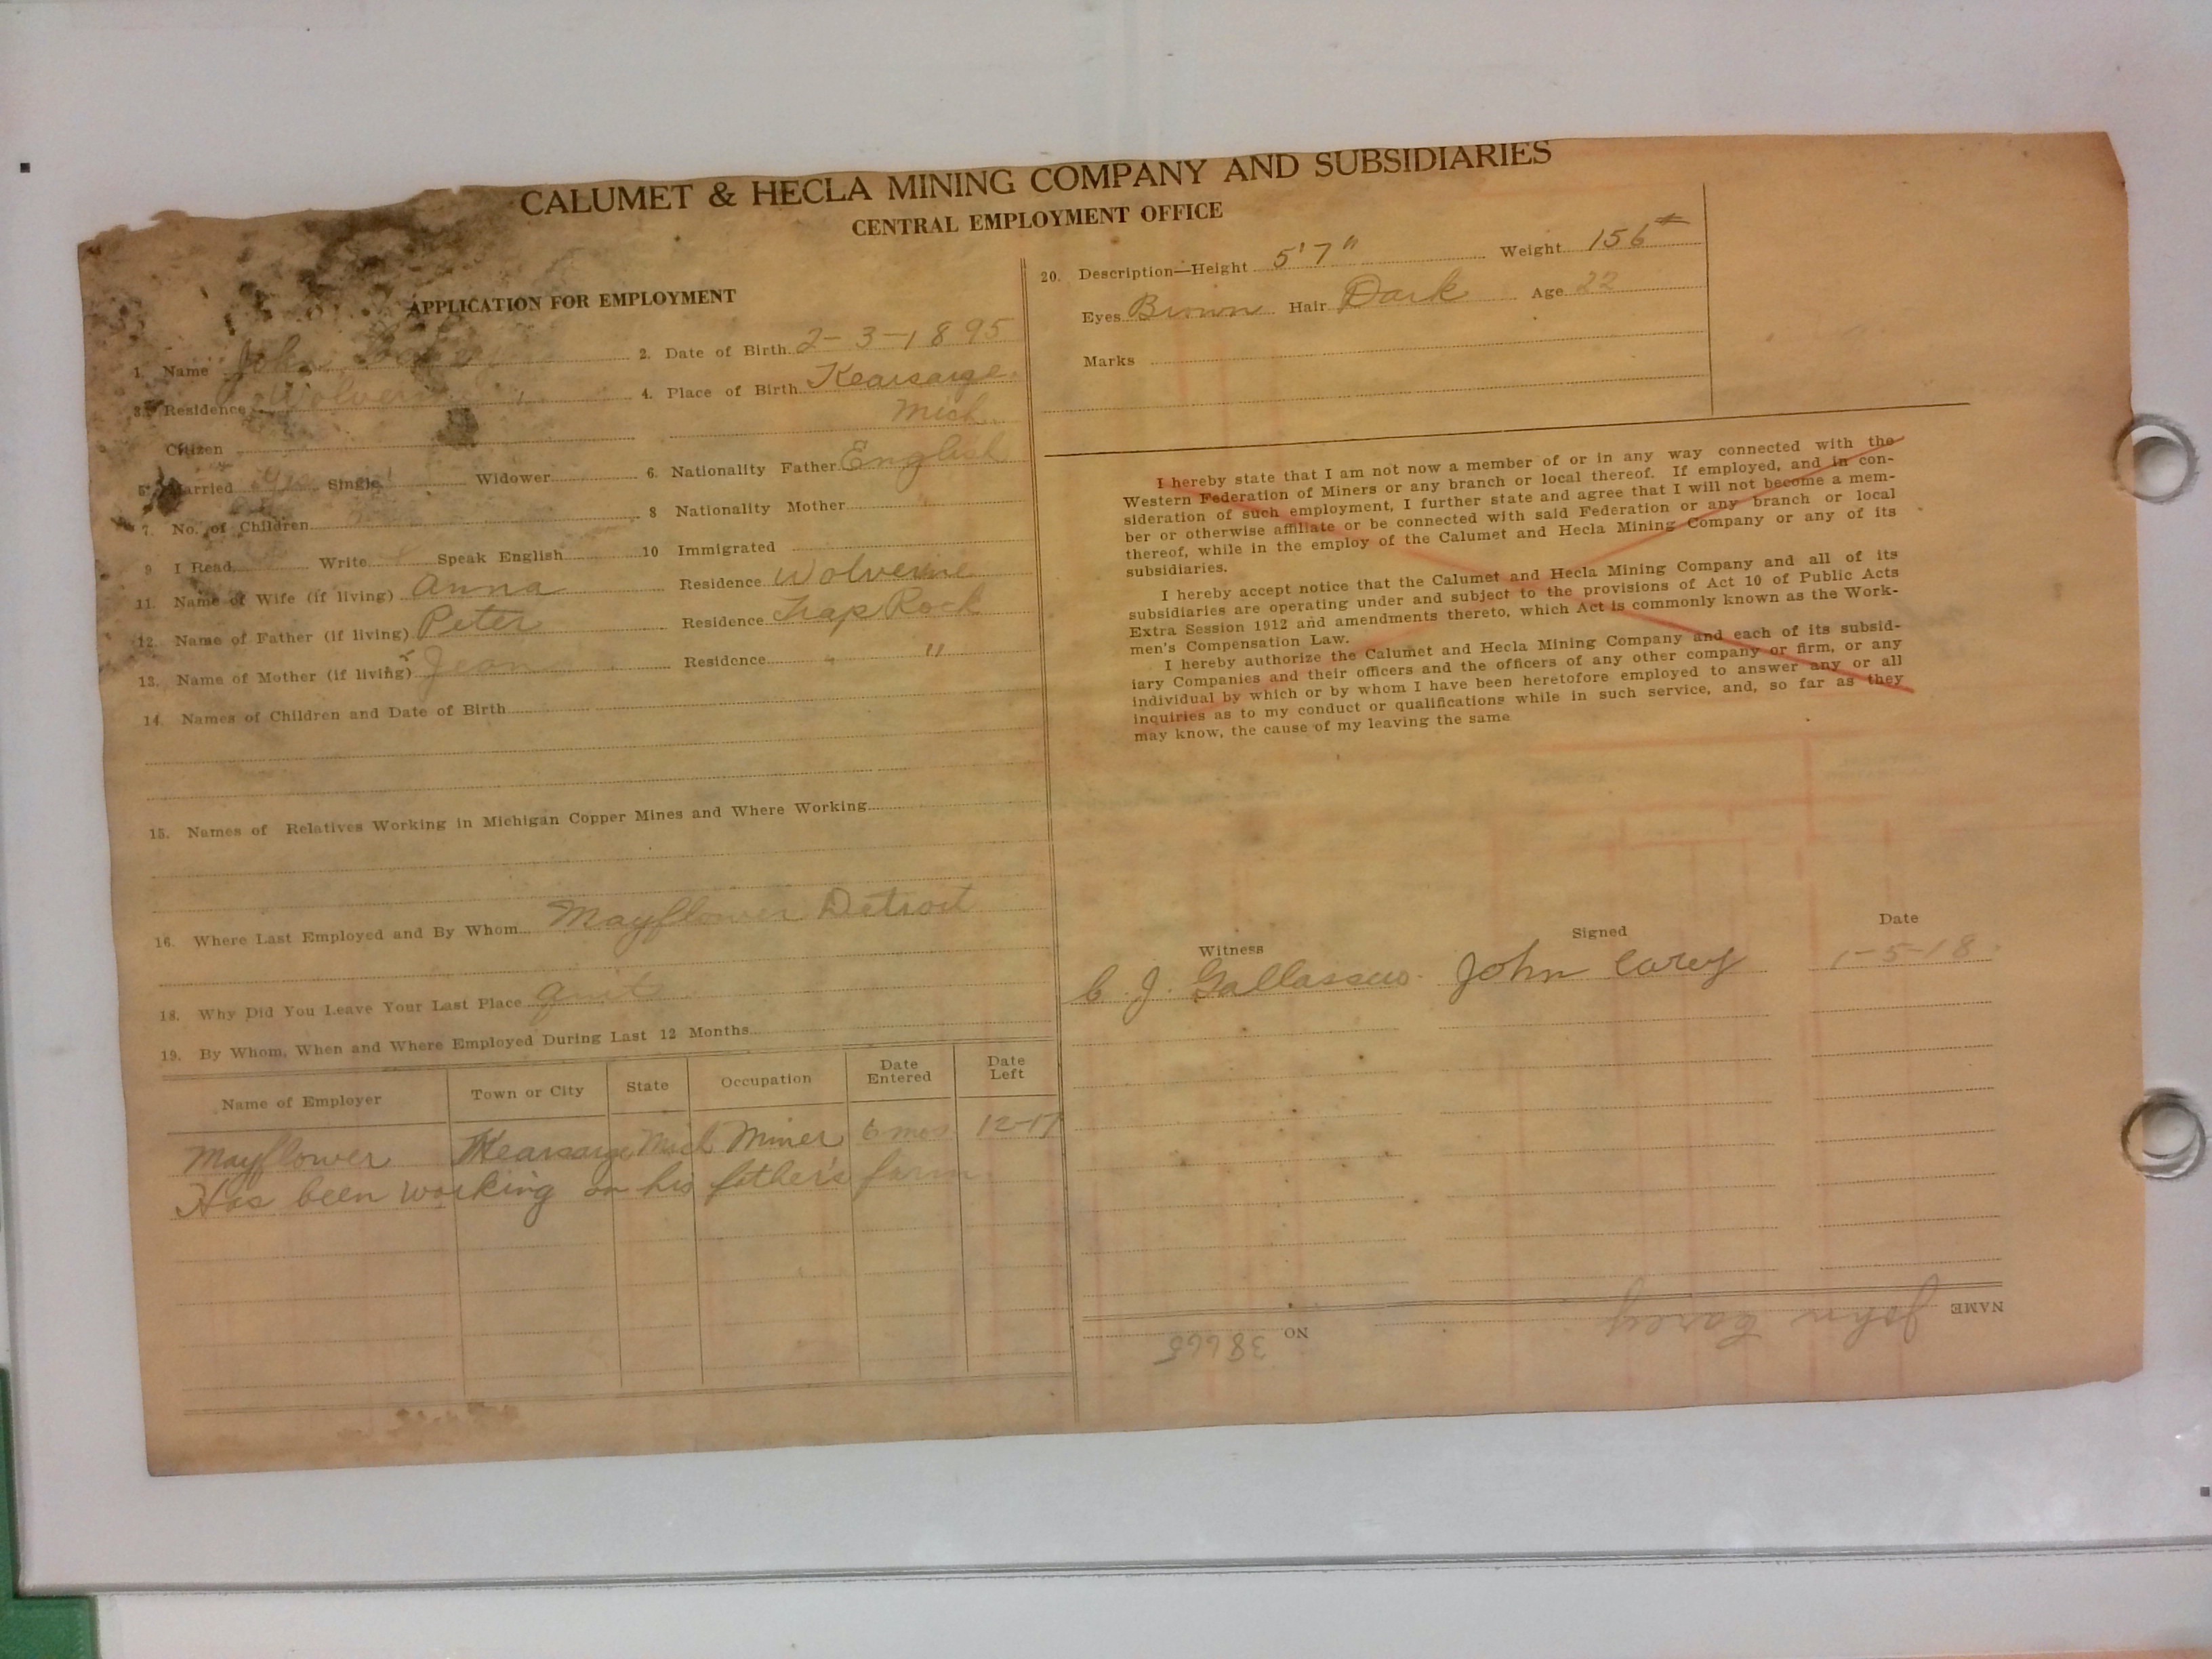 CALUMET & HECLA MINING COMPANY AND SUBSIDIARIES
CENTRAL EMPLOYMENT OFFICE
APPLICATION FOR EMPLOYMENT
1. Name John 2. Date of Birth 2-3-1895
3. Residence Wolverine 4. Place of Birth Kearsarge
Mich
Citizen
5. Married Yes Single Widower 6. Nationality Father English
7. No. of Children 8 Nationality Mother "
9 I Read Write Speak English 10 Immigrated
11. Name of Wife (if living) Anna Residence Wolverine
12. Name of Father (if living) Peter Residence Trap Rock
13. Name of Mother (if living) Jean Residence " "
14. Names of Children and Date of Birth
15. Names of Relatives Working in Michigan Copper Mines and Where Working
16. Where Last Employed and By Whom Mayflower Detroit
18. Why Did You Leave Your Last Place quit
19. By Whom, When and Where Employed During Last 12 Months
Name of Employer Town or City State Occupation Date Entered Date Left
Mayflower Kearsarge Mich Miner 6 mos 12-17
Has been working on his father's farm
20. Description—Height 5'7" Weight 156
Eyes Brown Hair Dark Age 22
Marks
I hereby state that I am not now a member of or in any way connected with the
Western Federation of Miners or any branch or local thereof. If employed, and in con-
sideration of such employment, I further state and agree that I will not become a mem-
ber or otherwise affiliate or be connected with said Federation or any branch or local
thereof, while in the employ of the Calumet and Hecla Mining Company or any of its
subsidiaries.
I hereby accept notice that the Calumet and Hecla Mining Company and all of its
subsidiaries are operating under and subject to the provisions of Act 10 of Public Acts
Extra Session 1912 and amendments thereto, which Act is commonly known as the Work-
men's Compensation Law.
I hereby authorize the Calumet and Hecla Mining Company and each of its subsid-
iary Companies and their officers and the officers of any other company or firm, or any
individual by which or by whom I have been heretofore employed to answer any or all
inquiries as to my conduct or qualifications while in such service, and, so far as they
may know, the cause of my leaving the same
Witness Signed Date
C. J. John Carey 1-5-18
NAME John Carey NO 38665